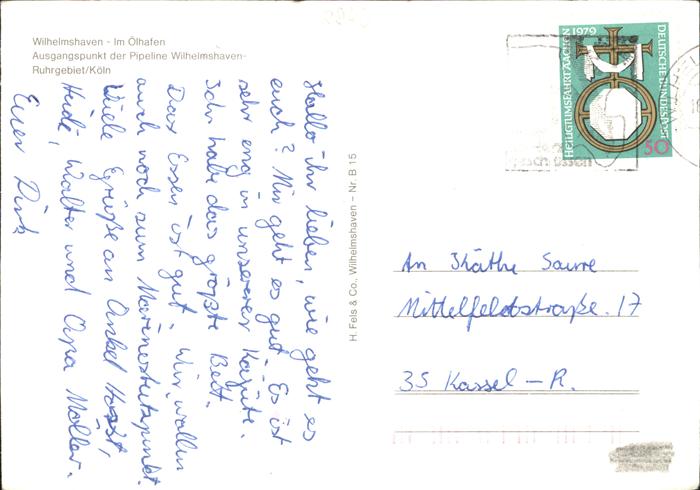 Wilhelmshaven - Im Ölhafen
Ausgangspunkt der Pipeline Wilhelmshaven-
Ruhrgebiet/Köln
Hallo ihr lieben, wie geht es
euch? Mir geht es gut. Es ist
sehr eng in unserer Kajüte.
Ich habe das größte Bett.
Das Essen ist gut. Wir wollen
auch noch zum Marinestützpunkt.
Viele Grüße an Onkel
Heidi, Walter und Opa Möller.
Euer Dirk
H. Fels & Co., Wilhelmshaven – Nr. B 15
HEILIGTUMSFAHRT AACHEN 1979
DEUTSCHE BUNDESPOST
50
An Käthe Saure
Mittelfeldstraße. 17
35 Kassel - R.